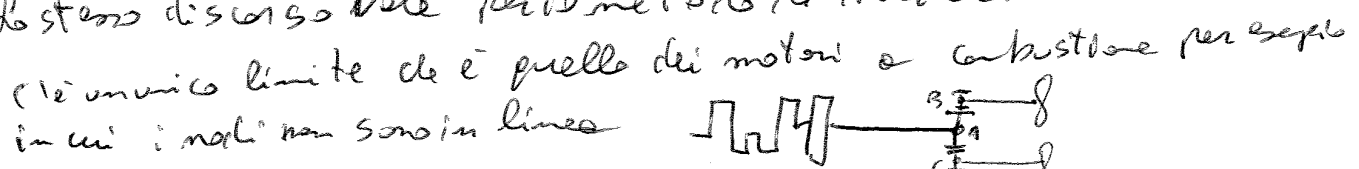 Lo stesso discorso vale
c'è un unico limite che è quello dei motori a combustione per esempio
in cui i nodi non sono in linea
B
A
C